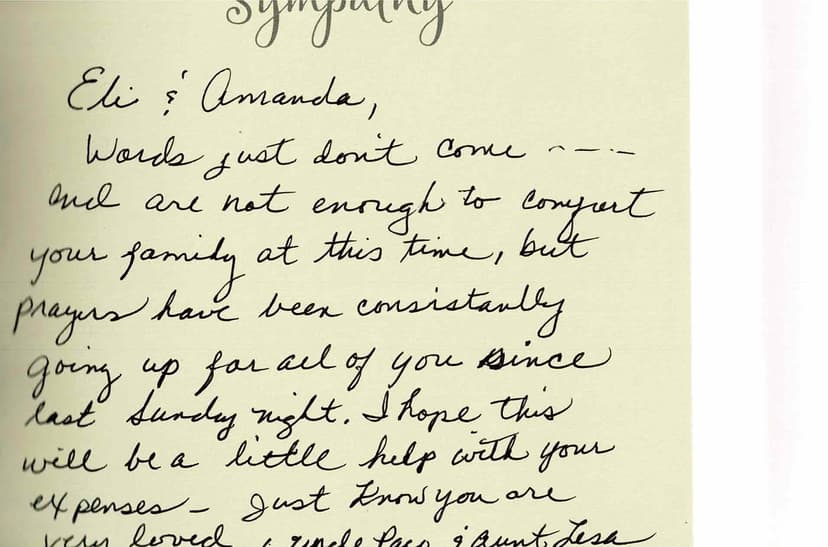 Sympathy
Eli & Amanda,
Words just don't come ----
and are not enough to comfort
your family at this time, but
prayers have been consistantly
going up for all of you since
last Sunday night. I hope this
will be a little help with your
expenses - Just know you are
very loved, Uncle & Aunt Lesa